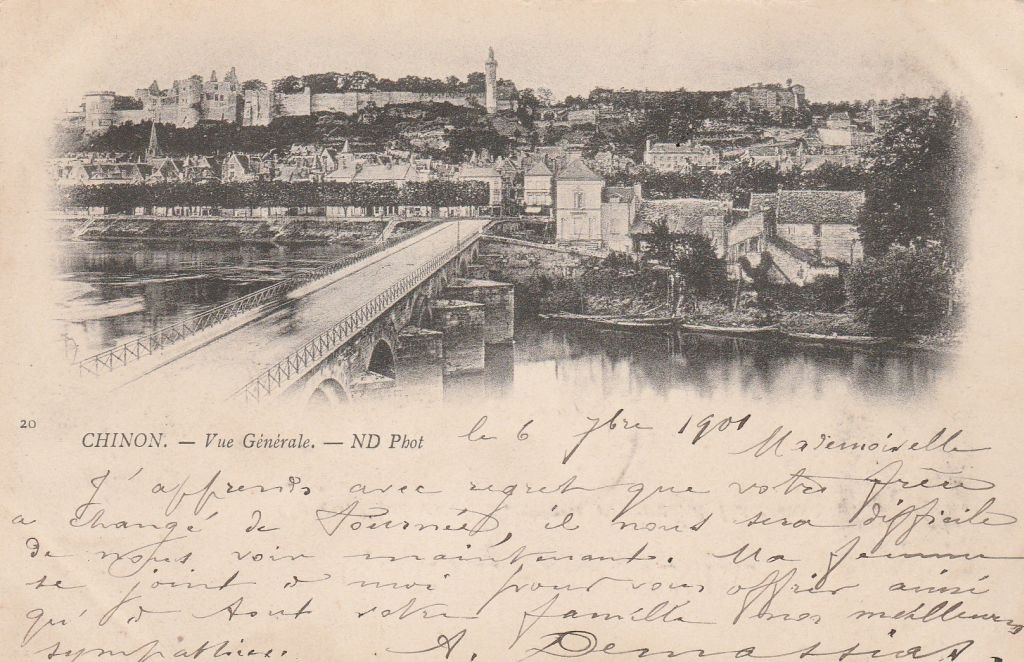 20
CHINON. — Vue Générale. — ND Phot
le 6 7bre 1901
Mademoiselle
J'apprends avec regret que votre frère
a changé de Tournée, il nous sera difficile
de nous voir maintenant. Ma femme
se joint à moi pour vous offrir ainsi
qu'à tout votre famille nos meilleurs
sympathies. A. Demassias.